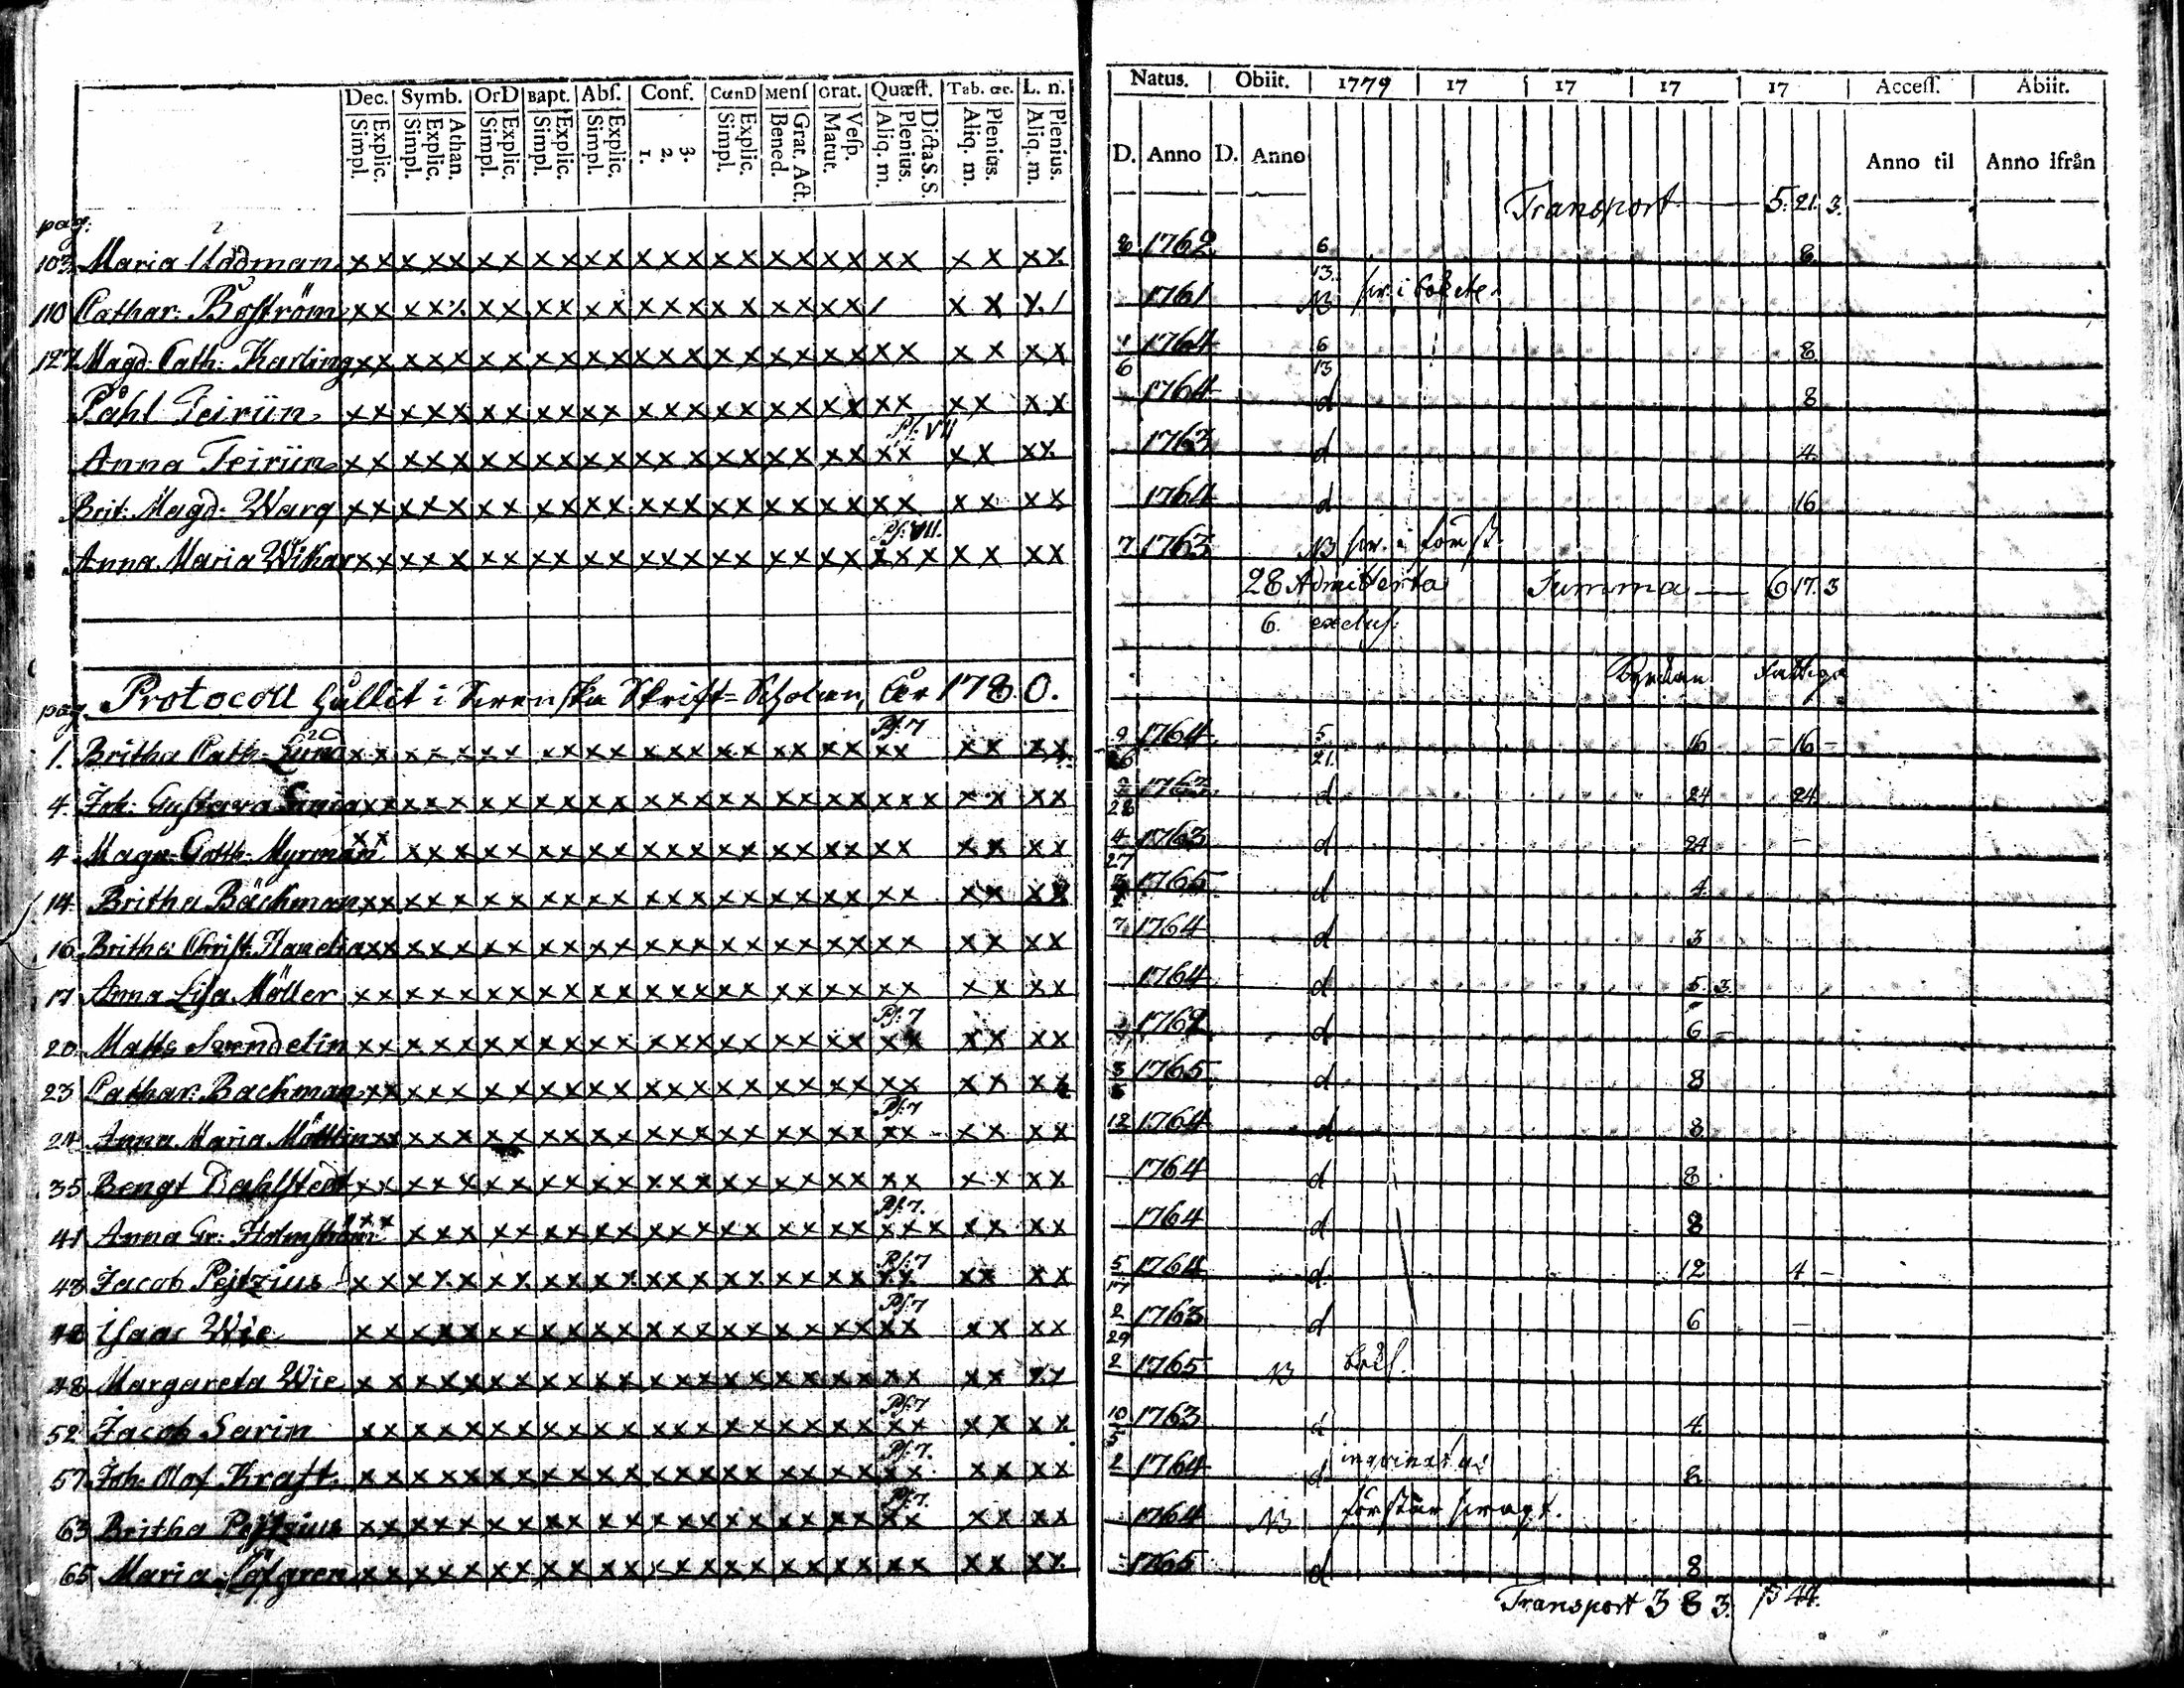 Dec. Symb. OrD Bapt. Abſ. Conf. CœnD Menſ Grat. Quæſt. Tab. œc. L. n.
Simpl. Explic. Simpl. Explic. Athan. Simpl. Explic. Simpl. Explic. Simpl. Explic. 1. 2. 3. Simpl. Explic. Bened. Grat. Act. Matut. Veſp. Aliq. m. Plenius. Dicta S. S. Aliq. m. Plenius. Aliq. m. Plenius.
Natus. Obiit. 1779 17 17 17 17 Acceſſ. Abiit.
D. Anno D. Anno Anno til Anno ifrån
Transport 5. 21. 3.
pag.
103 Maria xx xxx xx xx xx xxx xx xx xx xx xx xx 8 1762 6 13 8
110 Cathar: Boström xx xxx xx xx xx xxx xx xx xx / xx x/ 1761 NB
127 Magd: Cath: Karling xx xxx xx xx xx xxx xx xx xx xx xx xx 1 6 1764 6 13 8
Påhl Teirün xx xxx xx xx xx xxx xx xx xx xx xx xx 1764 d 8
Anna Teirün xx xxx xx xx xx xxx xx xx xx Ps: VII xx xx xx 1763 d 4
Brit: Magd: Warg xx xxx xx xx xx xxx xx xx xx xx xx xx 1764 d 16
Anna Maria Wikar xx xxx xx xx xx xxx xx xx xx Ps: VII. xxx xx xx 7 1763 NB
28 Admitterta Summa 6 17. 3
6. exclus:
Protocoll hållit i Swenska Skrift=Scholan, År 1780. Fattiga
pag.
1. Britha Cath. Lund xx xxx xx xx xx xxx xx xx xx Ps: 7 xx xx xx 9 26 1764 5 21 16 16
4. Joh: Gustava xx xxx xx xx xx xxx xx xx xx xxx xx xx 28 d 24 24
4 Magn: Gotth: Myrman xx xxx xx xx xx xxx xx xx xx xx xx xx 4 27 1763 d 24
14. Britha Bäckman xx xxx xx xx xx xxx xx xx xx xx xx xx 1765 d 4
16 Britha Christ. xx xxx xx xx xx xxx xx xx xx xx xx xx 7 1764 d 3
17 Anna Lisa Möller xx xxx xx xx xx xxx xx xx xx xx xx xx 1764 d 5. 3.
20 Matts xx xxx xx xx xx xxx xx xx xx Ps: 7 xx xx xx 1762 d 6
23 Cathar: Backman xx xxx xx xx xx xxx xx xx xx xx xx xx 3 1765 d 8
24 Anna Maria xx xxx xx xx xx xxx xx xx xx Ps: 7 xx xx xx 12 1764 d 8
35 Bengt Dahlstedt xx xxx xx xx xx xxx xx xx xx xx xx xx 1764 d 8
41 Anna Gr: Holmström xx xxx xx xx xx xxx xx xx xx Ps: 7. xxx xx xx 1764 d 8
43 Jacob Pejtzius xx xxx xx xx xx xxx xx xx xx Ps: 7 xx xx xx 5 17 1764 d 12 4
48 Isaac Wie xx xxx xx xx xx xxx xx xx xx Ps: 7 xx xx xx 2 29 1763 d 6
48 Margareta Wie xx xxx xx xx xx xxx xx xx xx xx xx xx 2 1765 NB
52 Jacob Sarin xx xxx xx xx xx xxx xx xx xx Ps: 7 xx xx xx 10 5 1763 d 4
57 Joh: Olof Kraft xx xxx xx xx xx xxx xx xx xx Ps: 7. xx xx xx 2 1764 d 8
63 Britha Pejtzius xx xxx xx xx xx xxx xx xx xx Ps: 7. xx xx xx 1764 NB förstår swagt.
65 Maria Löfgren xx xxx xx xx xx xxx xx xx xx xx xx xx 1765 d 8
Transport 3 8 3. 44.